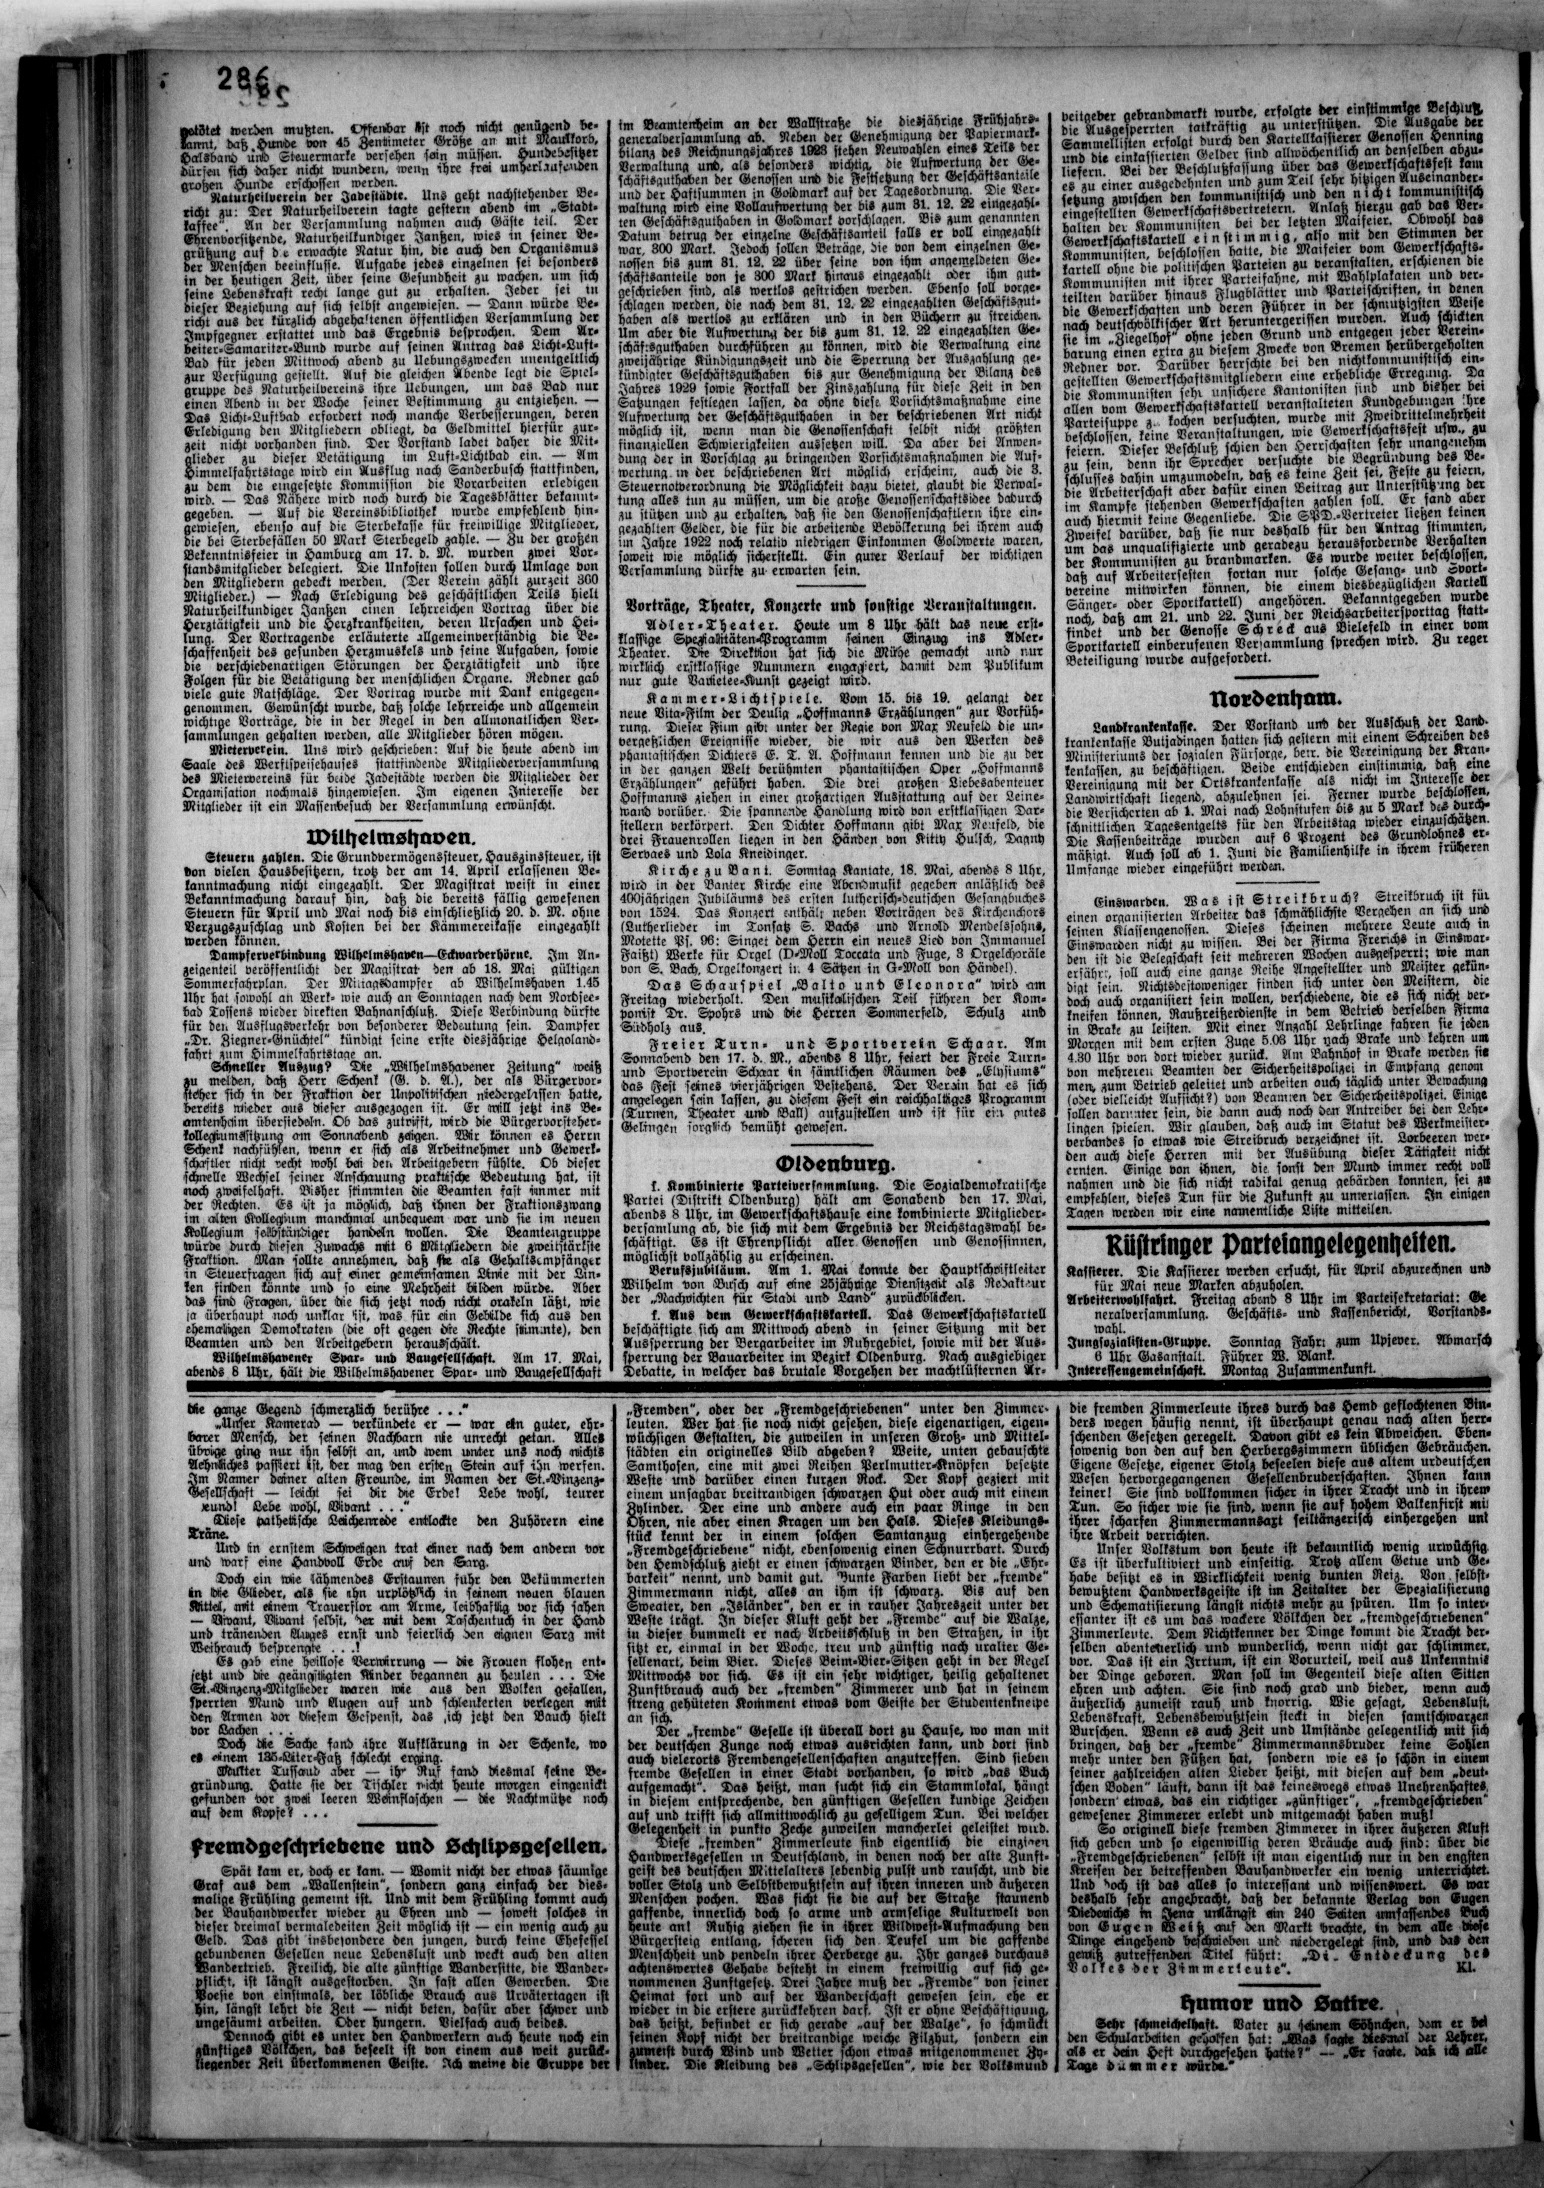 286
getötet werden mußten. Offenbar ist noch nicht genügend be-
kannt, daß Hunde von 45 Zentimeter Größe an mit Maulkorb,
Halsband und Steuermarke versehen sein müssen. Hundebesitzer
dürfen sich daher nicht wundern, wenn ihre frei umherlaufenden
großen Hunde erschossen werden.
Naturheilverein der Jadestädte. Uns geht nachstehender Be-
richt zu: Der Naturheilverein tagte gestern abend im „Stadt-
kaffee“. An der Versammlung nahmen auch Gäste teil. Der
Ehrenvorsitzende, Naturheilkundiger Janßen, wies in seiner Be-
grüßung auf die erwachte Natur hin, die auch den Organismus
der Menschen beeinflusse. Aufgabe jedes einzelnen sei besonders
in der heutigen Zeit, über seine Gesundheit zu wachen, um sich
seine Lebenskraft recht lange gut zu erhalten. Jeder sei in
dieser Beziehung auf sich selbst angewiesen. — Dann würde Be-
richt aus der kürzlich abgehaltenen öffentlichen Versammlung der
Impfgegner erstattet und das Ergebnis besprochen. Dem Ar-
beiter-Samariter-Bund wurde auf seinen Antrag das Licht-Luft-
Bad für jeden Mittwoch abend zu Uebungszwecken unentgeltlich
zur Verfügung gestellt. Auf die gleichen Abende legt die Spiel-
gruppe des Naturheilvereins ihre Uebungen, um das Bad nur
einen Abend in der Woche seiner Bestimmung zu entziehen. —
Das Licht-Luftbad erfordert noch manche Verbesserungen, deren
Erledigung den Mitgliedern obliegt, da Geldmittel hierfür zur-
zeit nicht vorhanden sind. Der Vorstand ladet daher die Mit-
glieder zu dieser Betätigung im Luft-Lichtbad ein. — Am
Himmelfahrtstage wird ein Ausflug nach Sanderbusch stattfinden,
zu dem die eingesetzte Kommission die Vorarbeiten erledigen
wird. — Das Nähere wird noch durch die Tagesblätter bekannt-
gegeben. — Auf die Vereinsbibliothek wurde empfehlend hin-
gewiesen, ebenso auf die Sterbekasse für freiwillige Mitglieder,
die bei Sterbefällen 50 Mark Sterbegeld zahle. — Zu der großen
Bekenntnisfeier in Hamburg am 17. d. M. wurden zwei Vor-
standsmitglieder delegiert. Die Unkosten sollen durch Umlage von
den Mitgliedern gedeckt werden. (Der Verein zählt zurzeit 360
Mitglieder.) — Nach Erledigung des geschäftlichen Teils hielt
Naturheilkundiger Janßen einen lehrreichen Vortrag über die
Herztätigkeit und die Herzkrankheiten, deren Ursachen und Hei-
lung. Der Vortragende erläuterte allgemeinverständig die Be-
schaffenheit des gesunden Herzmuskels und seine Aufgaben, sowie
die verschiedenartigen Störungen der Herztätigkeit und ihre
Folgen für die Betätigung der menschlichen Organe. Redner gab
viele gute Ratschläge. Der Vortrag wurde mit Dank entgegen-
genommen. Gewünscht wurde, daß solche lehrreiche und allgemein
wichtige Vorträge, die in der Regel in den allmonatlichen Ver-
sammlungen gehalten werden, alle Mitglieder hören mögen.
Mieterverein. Uns wird geschrieben: Auf die heute abend im
Saale des Werftspeisehauses stattfindende Mitgliederversammlung
des Mietervereins für beide Jadestädte werden die Mitglieder der
Organisation nochmals hingewiesen. Im eigenen Interesse der
Mitglieder ist ein Massenbesuch der Versammlung erwünscht.
Wilhelmshaven.
Steuern zahlen. Die Grundvermögenssteuer, Hauszinssteuer, ist
von vielen Hausbesitzern, trotz der am 14. April erlassenen Be-
kanntmachung nicht eingezahlt. Der Magistrat weist in einer
Bekanntmachung darauf hin, daß die bereits fällig gewesenen
Steuern für April und Mai noch bis einschließlich 20. d. M. ohne
Verzugszuschlag und Kosten bei der Kämmereikasse eingezahlt
werden können.
Dampferverbindung Wilhelmshaven—Eckwarderhörne. Im An-
zeigenteil veröffentlicht der Magistrat den ab 18. Mai gültigen
Sommerfahrplan. Der Mittagsdampfer ab Wilhelmshaven 1.45
Uhr hat sowohl an Werk- wie auch an Sonntagen nach dem Nordsee-
bad Tossens wieder direkten Bahnanschluß. Diese Verbindung dürfte
für den Ausflugsverkehr von besonderer Bedeutung sein. Dampfer
„Dr. Ziegner-Gnüchtel“ kündigt seine erste diesjährige Helgoland-
fahrt zum Himmelfahrtstage an.
Schneller Auszug? Die „Wilhelmshavener Zeitung“ weiß
zu melden, daß Herr Schenk (G. d. A.), der als Bürgervor-
steher sich in der Fraktion der Unpolitischen niedergelassen hatte,
bereits wieder aus dieser ausgezogen ist. Er will jetzt ins Be-
amtenheim übersiedeln. Ob das zutrifft, wird die Bürgervorsteher-
kollegiumssitzung am Sonnabend zeigen. Wir können es Herrn
Schenk nachfühlen, wenn er sich als Arbeitnehmer und Gewerk-
schaftler nicht recht wohl bei den Arbeitgebern fühlte. Ob dieser
schnelle Wechsel seiner Anschauung praktische Bedeutung hat, ist
noch zweifelhaft. Bisher stimmten die Beamten fast immer mit
der Rechten. Es ist ja möglich, daß ihnen der Fraktionszwang
im alten Kollegium manchmal unbequem war und sie im neuen
Kollegium selbständiger handeln wollen. Die Beamtengruppe
würde durch diesen Zuwachs mit 6 Mitgliedern die zweitstärkste
Fraktion. Man sollte annehmen, daß sie als Gehaltsempfänger
in Steuerfragen sich auf einer gemeinsamen Linie mit der Lin-
ken finden könnte und so eine Mehrheit bilden würde. Aber
das sind Fragen, über die sich jetzt noch nicht orakeln läßt, wie
ja überhaupt noch unklar ist, was für ein Gebilde sich aus den
ehemaligen Demokraten (die oft gegen die Rechte stimmte), den
Beamten und den Arbeitgebern herausschält.
Wilhelmshavener Spar- und Baugesellschaft. Am 17. Mai,
abends 8 Uhr, hält die Wilhelmshavener Spar- und Baugesellschaft
im Beamtenheim an der Wallstraße die diesjährige Frühjahrs-
generalversammlung ab. Neben der Genehmigung der Papiermark-
bilanz des Reichnungsjahres 1923 stehen Neuwahlen eines Teils der
Verwaltung und, als besonders wichtig, die Aufwertung der Ge-
schäftsguthaben der Genossen und die Festsetzung der Geschäftsanteile
und der Haftsummen in Goldmark auf der Tagesordnung. Die Ver-
waltung wird eine Vollaufwertung der bis zum 31. 12. 22 eingezahl-
ten Geschäftsguthaben in Goldmark vorschlagen. Bis zum genannten
Datum betrug der einzelne Geschäftsanteil falls er voll eingezahlt
war, 300 Mark. Jedoch sollen Beträge, die von dem einzelnen Ge-
nossen bis zum 31. 12. 22 über seine von ihm angemeldeten Ge-
schäftsanteile von je 300 Mark hinaus eingezahlt oder ihm gut-
geschrieben sind, als wertlos gestrichen werden. Ebenso soll vorge-
schlagen werden, die nach dem 31. 12. 22 eingezahlten Geschäftsgut-
haben als wertlos zu erklären und in den Büchern zu streichen.
Um aber die Aufwertung der bis zum 31. 12. 22 eingezahlten Ge-
schäftsguthaben durchführen zu können, wird die Verwaltung eine
zweijährige Kündigungszeit und die Sperrung der Auszahlung ge-
kündigter Geschäftsguthaben bis zur Genehmigung der Bilanz des
Jahres 1929 sowie Fortfall der Zinszahlung für diese Zeit in den
Satzungen festlegen lassen, da ohne diese Vorsichtsmaßnahme eine
Aufwertung der Geschäftsguthaben in der beschriebenen Art nicht
möglich ist, wenn man die Genossenschaft selbst nicht größten
finanziellen Schwierigkeiten aussetzen will. Da aber bei Anwen-
dung der in Vorschlag zu bringenden Vorsichtsmaßnahmen die Auf-
wertung in der beschriebenen Art möglich erscheint, auch die 3.
Steuernotverordnung die Möglichkeit dazu bietet, glaubt die Verwal-
tung alles tun zu müssen, um die große Genossenschaftsidee dadurch
zu stützen und zu erhalten, daß sie den Genossenschaftlern ihre ein-
gezahlten Gelder, die für die arbeitende Bevölkerung bei ihrem auch
im Jahre 1922 noch relativ niedrigen Einkommen Goldwerte waren,
soweit wie möglich sicherstellt. Ein guter Verlauf der wichtigen
Versammlung dürfte zu erwarten sein.
Vorträge, Theater, Konzerte und sonstige Veranstaltungen.
Adler-Theater. Heute um 8 Uhr hält das neue erst-
klassige Spezialitäten-Programm seinen Einzug ins Adler-
Theater. Die Direktion hat sich die Mühe gemacht und nur
wirklich erstklassige Nummern engagiert, damit dem Publikum
nur gute Varietee-Kunst gezeigt wird.
Kammer-Lichtspiele. Vom 15. bis 19. gelangt der
neue Vita-Film der Deulig „Hoffmanns Erzählungen“ zur Vorfüh-
rung. Dieser Film gibt unter der Regie von Max Neufeld die un-
vergeßlichen Ereignisse wieder, die wir aus den Werken des
phantastischen Dichters E. T. A. Hoffmann kennen und die zu der
in der ganzen Welt berühmten phantastischen Oper „Hoffmanns
Erzählungen“ geführt haben. Die drei großen Liebesabenteuer
Hoffmanns ziehen in einer großartigen Ausstattung auf der Leine-
wand vorüber. Die spannende Handlung wird von erstklassigen Dar-
stellern verkörpert. Den Dichter Hoffmann gibt Max Neufeld, die
drei Frauenrollen liegen in den Händen von Kitty Hulsch, Dagny
Servaes und Lola Kneidinger.
Kirche zu Bant. Sonntag Kantate, 18. Mai, abends 8 Uhr,
wird in der Banter Kirche eine Abendmusik gegeben anläßlich des
400jährigen Jubiläums des ersten lutherisch-deutschen Gesangbuches
von 1524. Das Konzert enthält neben Vorträgen des Kirchenchors
(Lutherlieder im Tonsatz S. Bachs und Arnold Mendelssohns,
Motette Ps. 96: Singet dem Herrn ein neues Lied von Immanuel
Faißt) Werke für Orgel (D-Moll Toccata und Fuge, 3 Orgelchoräle
von S. Bach, Orgelkonzert in 4 Sätzen in G-Moll von Händel).
Das Schauspiel „Balto und Eleonora“ wird am
Freitag wiederholt. Den musikalischen Teil führen der Kom-
ponist Dr. Spohrs und die Herren Sommerfeld, Schulz und
Südholz aus.
Freier Turn- und Sportverein Schaar. Am
Sonnabend den 17. d. M., abends 8 Uhr, feiert der Freie Turn-
und Sportverein Schaar in sämtlichen Räumen des „Elysiums“
das Fest seines vierjährigen Bestehens. Der Verein hat es sich
angelegen sein lassen, zu diesem Fest ein reichhaltiges Programm
(Turnen, Theater und Ball) aufzustellen und ist für ein gutes
Gelingen sorglich bemüht gewesen.
Oldenburg.
f. Kombinierte Parteiversammlung. Die Sozialdemokratische
Partei (Distrikt Oldenburg) hält am Sonabend den 17. Mai,
abends 8 Uhr, im Gewerkschaftshause eine kombinierte Mitglieder-
versamlung ab, die sich mit dem Ergebnis der Reichstagswahl be-
schäftigt. Es ist Ehrenpflicht aller Genossen und Genossinnen,
möglichst vollzählig zu erscheinen.
Berufsjubiläum. Am 1. Mai konnte der Hauptschriftleiter
Wilhelm von Busch auf eine 25jährige Dienstzeit als Redakteur
der „Nachrichten für Stadt und Land“ zurückblicken.
f. Aus dem Gewerkschaftskartell. Das Gewerkschaftskartell
beschäftigte sich am Mittwoch abend in seiner Sitzung mit der
Aussperrung der Bergarbeiter im Ruhrgebiet, sowie mit der Aus-
sperrung der Bauarbeiter im Bezirk Oldenburg. Nach ausgiebiger
Debatte, in welcher das brutale Vorgehen der machtlüsternen Ar-
beitgeber gebrandmarkt wurde, erfolgte der einstimmige Beschluß,
die Ausgesperrten tatkräftig zu unterstützen. Die Ausgabe der
Sammellisten erfolgt durch den Kartellkassierer Genossen Henning
und die einkassierten Gelder sind allwöchentlich an denselben abzu-
liefern. Bei der Beschlußfassung über das Gewerkschaftsfest kam
es zu einer ausgedehnten und zum Teil sehr hitzigen Auseinander-
setzung zwischen den kommunistisch und den nicht kommunistisch
eingestellten Gewerkschaftsvertretern. Anlaß hierzu gab das Ver-
halten der Kommunisten bei der letzten Maifeier. Obwohl das
Gewerkschaftskartell einstimmig, also mit den Stimmen der
Kommunisten, beschlossen hatte, die Maifeier vom Gewerkschafts-
kartell ohne die politischen Parteien zu veranstalten, erschienen die
Kommunisten mit ihrer Parteifahne, mit Wahlplakaten und ver-
teilten darüber hinaus Flugblätter und Parteischriften, in denen
die Gewerkschaften und deren Führer in der schmutzigsten Weise
nach deutschvölkischer Art heruntergerissen wurden. Auch schickten
sie im „Ziegelhof“ ohne jeden Grund und entgegen jeder Verein-
barung einen extra zu diesem Zwecke von Bremen herübergeholten
Redner vor. Darüber herrschte bei den nichtkommunistisch ein-
gestellten Gewerkschaftsmitgliedern eine erhebliche Erregung. Da
die Kommunisten sehr unsichere Kantonisten sind und bisher bei
allen vom Gewerkschaftskartell veranstalteten Kundgebungen ihre
Parteisuppe zu kochen versuchten, wurde mit Zweidrittelmehrheit
beschlossen, keine Veranstaltungen, wie Gewerkschaftsfest usw., zu
feiern. Dieser Beschluß schien den Herrschaften sehr unangenehm
zu sein, denn ihr Sprecher versuchte die Begründung des Be-
schlusses dahin umzumodeln, daß es keine Zeit sei, Feste zu feiern,
die Arbeiterschaft aber dafür einen Beitrag zur Unterstützung der
im Kampfe stehenden Gewerkschaften zahlen soll. Er fand aber
auch hiermit keine Gegenliebe. Die SPD.-Vertreter ließen keinen
Zweifel darüber, daß sie nur deshalb für den Antrag stimmten,
um das unqualifizierte und geradezu herausfordernde Verhalten
der Kommunisten zu brandmarken. Es wurde weiter beschlossen,
daß auf Arbeiterfesten fortan nur solche Gesang- und Sport-
vereine mitwirken können, die einem diesbezüglichen Kartell
Sänger- oder Sportkartell) angehören. Bekanntgegeben wurde
noch, daß am 21. und 22. Juni der Reichsarbeitersporttag statt-
findet und der Genosse Schreck aus Bielefeld in einer vom
Sportkartell einberufenen Versammlung sprechen wird. Zu reger
Beteiligung wurde aufgefordert.
Nordenham.
Landkrankenkasse. Der Vorstand und der Ausschuß der Land-
krankenkasse Butjadingen hatten sich gestern mit einem Schreiben des
Ministeriums der sozialen Fürsorge, betr. die Vereinigung der Kran-
kenkassen, zu beschäftigen. Beide entschieden einstimmig, daß eine
Vereinigung mit der Ortskrankenkasse als nicht im Interesse der
Landwirtschaft liegend, abzulehnen sei. Ferner wurde beschlossen,
die Versicherten ab 1. Mai nach Lohnstufen bis zu 5 Mark des durch-
schnittlichen Tagesentgelts für den Arbeitstag wieder einzuschätzen.
Die Kassenbeiträge wurden auf 6 Prozent des Grundlohnes er-
mäßigt. Auch soll ab 1. Juni die Familienhilfe in ihrem früheren
Umfange wieder eingeführt werden.
Einswarden. Was ist Streikbruch? Streikbruch ist für
einen organisierten Arbeiter das schmählichste Vergehen an sich und
seinen Klassengenossen. Dieses scheinen mehrere Leute auch in
Einswarden nicht zu wissen. Bei der Firma Frerichs in Einswar-
den ist die Belegschaft seit mehreren Wochen ausgesperrt; wie man
erfährt, soll auch eine ganze Reihe Angestellter und Meister gekün-
digt sein. Nichtsdestoweniger finden sich unter den Meistern, die
doch auch organisiert sein wollen, verschiedene, die es sich nicht ver-
kneifen können, Raußreißerdienste in dem Betrieb derselben Firma
in Brake zu leisten. Mit einer Anzahl Lehrlinge fahren sie jeden
Morgen mit dem ersten Zuge 5.03 Uhr nach Brake und kehren um
4.30 Uhr von dort wieder zurück. Am Bahnhof in Brake werden sie
von mehreren Beamten der Sicherheitspolizei in Empfang genom
men, zum Betrieb geleitet und arbeiten auch täglich unter Bewachung
(oder vielleicht Aufsicht?) von Beamten der Sicherheitspolizei. Einige
sollen darunter sein, die dann auch noch den Antreiber bei den Lehr-
lingen spielen. Wir glauben, daß auch im Statut des Werkmeister-
verbandes so etwas wie Streibruch verzeichnet ist. Lorbeeren wer-
den auch diese Herren mit der Ausübung dieser Tätigkeit nicht
ernten. Einige von ihnen, die sonst den Mund immer recht voll
nahmen und die sich nicht radikal genug gebärden konnten, sei zu
empfehlen, dieses Tun für die Zukunft zu unterlassen. In einigen
Tagen werden wir eine namentliche Liste mitteilen.
Rüstringer Parteiangelegenheiten.
Kassierer. Die Kassierer werden ersucht, für April abzurechnen und
für Mai neue Marken abzuholen.
Arbeiterwohlfahrt. Freitag abend 8 Uhr im Parteisekretariat: Ge
neralversammlung. Geschäfts- und Kassenbericht, Vorstands-
wahl.
Jungsozialisten-Gruppe. Sonntag Fahrt zum Upjever. Abmarsch
6 Uhr Gasanstalt. Führer W. Blank.
Interessengemeinschaft. Montag Zusammenkunft.
die ganze Gegend schmerzlich berühre . . .“
„Unser Kamerad — verkündete er — war ein guter, ehr-
barer Mensch, der seinen Nachbarn nie unrecht getan. Alles
übrige ging nur ihn selbst an, und wem unter uns noch nichts
Aehnliches passiert ist, der mag den ersten Stein auf ihn werfen.
Im Namen deiner alten Freunde, im Namen der St.-Vinzenz-
Gesellschaft — leicht sei dir die Erde! Lebe wohl, teurer
Freund! Lebe wohl, Vivant . . .“
Diese pathetische Leichenrede entlockte den Zuhörern eine
Träne.
Und in ernstem Schweigen trat einer nach dem andern vor
und warf eine Handvoll Erde auf den Sarg.
Doch ein wie lähmendes Erstaunen fuhr den Bekümmerten
in die Glieder, als sie ihn urplötzlich in seinem neuen blauen
Kittel, mit einem Trauerflor am Arme, leibhaftig vor sich sahen
— Vivant, Vivant selbst, der mit dem Taschentuch in der Hand
und tränenden Auges ernst und feierlich den eignen Sarg mit
Weihrauch besprengte . . .!
Es gab eine heillose Verwirrung — die Frauen flohen ent-
setzt und die geängstigten Kinder begannen zu heulen . . . Die
St.-Vinzenz-Mitglieder waren wie aus den Wolken gefallen,
sperrten Mund und Augen auf und schlenkerten verlegen mit
den Armen vor diesem Gespenst, das sich jetzt den Bauch hielt
vor Lachen . . .
Doch die Sache fand ihre Aufklärung in der Schenke, wo
es einem 135-Liter-Faß schlecht erging.
Mutter Tussaud aber — ihr Ruf fand diesmal seine Be-
gründung. Hatte sie der Tischler nicht heute morgen eingenickt
gefunden vor zwei leeren Weinflaschen — die Nachtmütze noch
auf dem Kopfe? . . .
Fremdgeschriebene und Schlipsgesellen.
Spät kam er, doch er kam. — Womit nicht der etwas säumige
Graf aus dem „Wallenstein“, sondern ganz einfach der dies-
malige Frühling gemeint ist. Und mit dem Frühling kommt auch
der Bauhandwerker wieder zu Ehren und — soweit solches in
dieser dreimal vermaledeiten Zeit möglich ist — ein wenig auch zu
Geld. Das gibt insbesondere den jungen, durch keine Ehefessel
gebundenen Gesellen neue Lebenslust und weckt auch den alten
Wandertrieb. Freilich, die alte zünftige Wandersitte, die Wander-
pflicht, ist längst ausgestorben. In fast allen Gewerben. Die
Poesie von einstmals, der löbliche Brauch aus Urvätertagen ist
hin, längst lehrt die Zeit — nicht beten, dafür aber schwer und
ungesäumt arbeiten. Oder hungern. Vielfach auch beides.
Dennoch gibt es unter den Handwerkern auch heute noch ein
zünftiges Völkchen, das beseelt ist von einem aus weit zurück-
liegender Zeit überkommenen Geiste. Ich meine die Gruppe der
„Fremden“, oder der „Fremdgeschriebenen“ unter den Zimmer-
leuten. Wer hat sie noch nicht gesehen, diese eigenartigen, eigen-
wüchsigen Gestalten, die zuweilen in unseren Groß- und Mittel-
städten ein originelles Bild abgeben? Weite, unten gebauschte
Samthosen, eine mit zwei Reihen Perlmutter-Knöpfen besetzte
Weste und darüber einen kurzen Rock. Der Kopf geziert mit
einem unsagbar breitrandigen schwarzen Hut oder auch mit einem
Zylinder. Der eine und andere auch ein paar Ringe in den
Ohren, nie aber einen Kragen um den Hals. Dieses Kleidungs-
stück kennt der in einem solchen Samtanzug einhergehende
„Fremdgeschriebene“ nicht, ebensowenig einen Schnurrbart. Durch
den Hemdschluß zieht er einen schwarzen Binder, den er die „Ehr-
barkeit“ nennt, und damit gut. Bunte Farben liebt der „fremde“
Zimmermann nicht, alles an ihm ist schwarz. Bis auf den
Sweater, den „Isländer“, den er in rauher Jahreszeit unter der
Weste trägt. In dieser Kluft geht der „Fremde“ auf die Walze,
in dieser bummelt er nach Arbeitsschluß in den Straßen, in ihr
sitzt er, einmal in der Woche, treu und zünftig nach uralter Ge-
sellenart, beim Bier. Dieses Beim-Bier-Sitzen geht in der Regel
Mittwochs vor sich. Es ist ein sehr wichtiger, heilig gehaltener
Zunftbrauch auch der „fremden“ Zimmerer und hat in seinem
streng gehüteten Komment etwas vom Geiste der Studentenkneipe
an sich.
Der „fremde“ Geselle ist überall dort zu Hause, wo man mit
der deutschen Zunge noch etwas ausrichten kann, und dort sind
auch vielerorts Fremdengesellenschaften anzutreffen. Sind sieben
fremde Gesellen in einer Stadt vorhanden, so wird „das Buch
aufgemacht“. Das heißt, man sucht sich ein Stammlokal, hängt
in diesem entsprechende, den zünftigen Gesellen kundige Zeichen
auf und trifft sich allmittwochlich zu geselligem Tun. Bei welcher
Gelegenheit in punkto Zeche zuweilen mancherlei geleistet wird.
Diese „fremden“ Zimmerleute sind eigentlich die einzigen
Handwerksgesellen in Deutschland, in denen noch der alte Zunft-
geist des deutschen Mittelalters lebendig pulst und rauscht, und die
voller Stolz und Selbstbewußtsein auf ihren inneren und äußeren
Menschen pochen. Was ficht sie die auf der Straße staunend
gaffende, innerlich doch so arme und armselige Kulturwelt von
heute an! Ruhig ziehen sie in ihrer Wildwest-Aufmachung den
Bürgersteig entlang, scheren sich den Teufel um die gaffende
Menschheit und pendeln ihrer Herberge zu. Ihr ganzes durchaus
achtenswertes Gehabe besteht in einem freiwillig auf sich ge-
nommenen Zunftgesetz. Drei Jahre muß der „Fremde“ von seiner
Heimat fort und auf der Wanderschaft gewesen sein, ehe er
wieder in die erstere zurückkehren darf. Ist er ohne Beschäftigung,
das heißt, befindet er sich gerade „auf der Walze“, so schmückt
seinen Kopf nicht der breitrandige weiche Filzhut, sondern ein
zumeist durch Wind und Wetter schon etwas mitgenommener Zy-
linder. Die Kleidung des „Schlipsgesellen“, wie der Volksmund
die fremden Zimmerleute ihres durch das Hemd geflochtenen Bin-
ders wegen häufig nennt, ist überhaupt genau nach alten herr-
schenden Gesetzen geregelt. Davon gibt es kein Abweichen. Eben-
sowenig von den auf den Herbergszimmern üblichen Gebräuchen.
Eigene Gesetze, eigener Stolz beseelen diese aus altem urdeutschen
Wesen hervorgegangenen Gesellenbruderschaften. Ihnen kann
keiner! Sie sind vollkommen sicher in ihrer Tracht und in ihrem
Tun. So sicher wie sie sind, wenn sie auf hohem Balkenfirst mit
ihrer scharfen Zimmermannsaxt seiltänzerisch einhergehen und
ihre Arbeit verrichten.
Unser Volkstum von heute ist bekanntlich wenig urwüchsig.
Es ist überkultiviert und einseitig. Trotz allem Getue und Ge-
habe besitzt es in Wirklichkeit wenig bunten Reiz. Von selbst-
bewußtem Handwerksgeiste ist im Zeitalter der Spezialisierung
und Schematisierung längst nichts mehr zu spüren. Um so inter-
essanter ist es um das wackere Völkchen der „fremdgeschriebenen“
Zimmerleute. Dem Nichtkenner der Dinge kommt die Tracht der-
selben abenteuerlich und wunderlich, wenn nicht gar schlimmer,
vor. Das ist ein Irrtum, ist ein Vorurteil, weil aus Unkenntnis
der Dinge geboren. Man soll im Gegenteil diese alten Sitten
ehren und achten. Sie sind noch grad und bieder, wenn auch
äußerlich zumeist rauh und knorrig. Wie gesagt, Lebenslust,
Lebenskraft, Lebensbewußtsein steckt in diesen samtschwarzen
Burschen. Wenn es auch Zeit und Umstände gelegentlich mit sich
bringen, daß der „fremde“ Zimmermannsbruder keine Sohlen
mehr unter den Füßen hat, sondern wie es so schön in einem
seiner zahlreichen alten Lieder heißt, mit diesen auf dem „deut-
schen Boden“ läuft, dann ist das keineswegs etwas Unehrenhaftes,
sondern etwas, das ein richtiger „zünftiger“, „fremdgeschrieben“
gewesener Zimmerer erlebt und mitgemacht haben muß!
So originell diese fremden Zimmerer in ihrer äußeren Kluft
sich geben und so eigenwillig deren Bräuche auch sind: über die
„Fremdgeschriebenen“ selbst ist man eigentlich nur in den engsten
Kreisen der betreffenden Bauhandwerker ein wenig unterrichtet.
Und doch ist das alles so interessant und wissenswert. Es war
deshalb sehr angebracht, daß der bekannte Verlag von Eugen
Diederichs in Jena unlängst ein 240 Seiten umfassendes Buch
von Eugen Weiß auf den Markt brachte, in dem alle diese
Dinge eingehend beschrieben und niedergelegt sind, und das den
gewiß zutreffenden Titel führt: „Die Entdeckung des
Volkes der Zimmerleute“. Kl.
Humor und Satire.
Sehr schmeichelhaft. Vater zu seinem Söhnchen, dem er bei
den Schularbeiten geholfen hat: „Was sagte diesmal der Lehrer,
als er dein Heft durchgesehen hatte?“ — „Er sagte, daß ich alle
Tage dümmer würde.“